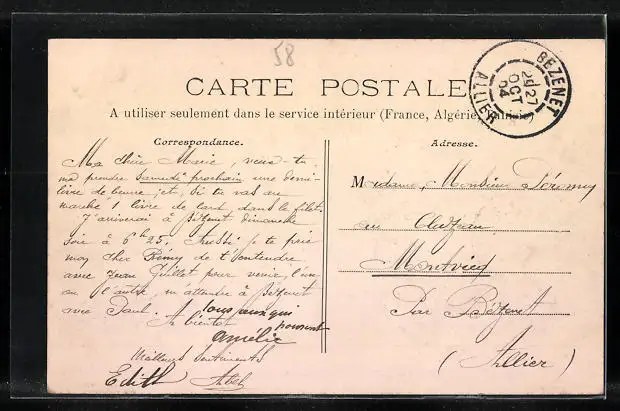 58
CARTE POSTALE
A utiliser seulement dans le service intérieur (France, Algérie, Tunisie)
BEZENET
27
OCT
04
ALLIER
Correspondance.
Ma chère Marie, veux-tu
me prendre Samedi prochain une demi-
livre de beurre et, si tu vas au
marché 1 livre de lard dans le filet.
J'arriverai à Bézenet dimanche
soir à 6h25. Aussi je te prie
mon cher Rémy de t'entendre
avec Jean Guillet pour venir, l'un
ou l'autre, m'attendre à Bézenet
avec Paul. A tous ceux qui
A bientôt peuvent
Amélie
Meilleurs Sentiments
Edith Abel
Adresse.
Madame, Monsieur
au
Montvicq
Par Bézenet
(Allier)